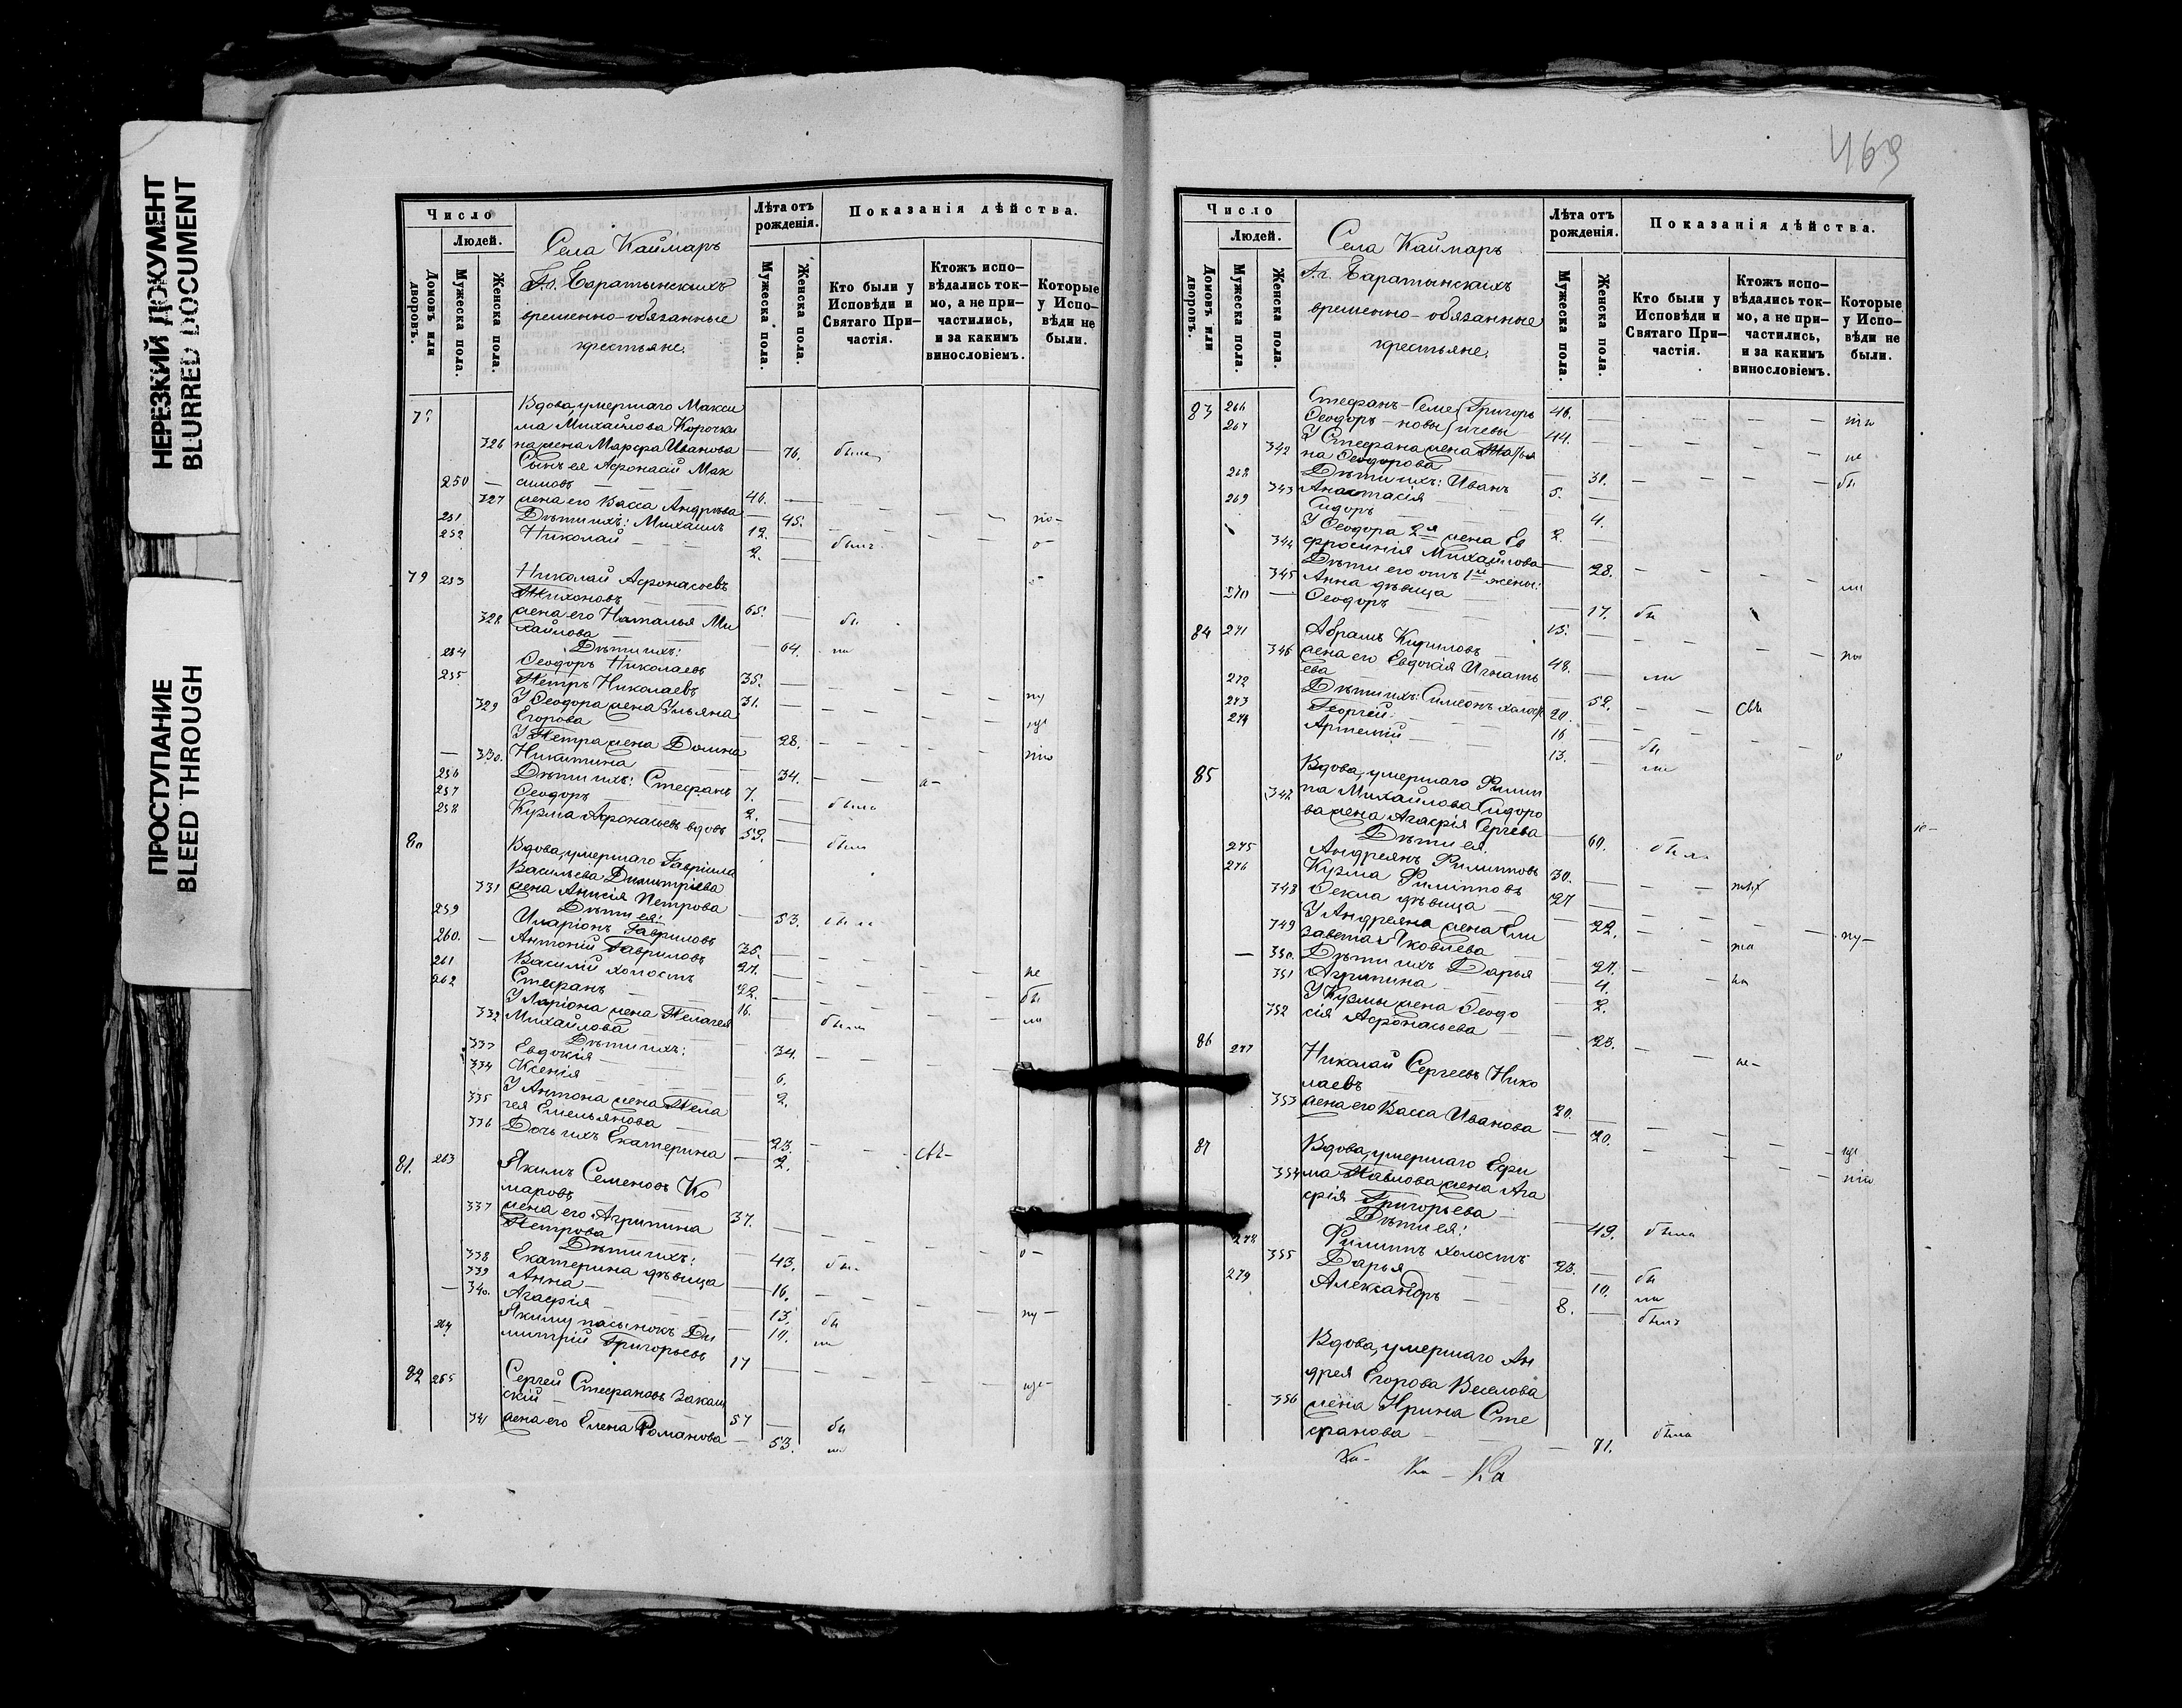 НЕРЕЗКИЙ ДОКУМЕНТ
BLURRED DOCUMENT
ПРОСТУПАНИЕ
BLEED THROUGH
Число
Людей.
Домовъ или дворовъ.
Мужеска пола.
Женска пола.
Села Каймаръ
Гг. Баратынскихъ
временно-обязанные
крестьяне.
Лѣта отъ рожденія.
Мужеска пола.
Женска пола.
Показанія дѣйства.
Кто были у Исповѣди и Святаго Причастія.
Ктожъ исповѣдались токмо, а не причастились, и за какимъ винословіемъ.
Которые у Исповѣди не были.
Вдова, умершаго Макси
ма Михайлова Корочки
326 на жена Марѳа Иванова — 76. была
Сынъ ея Аѳонасій Мак
250 — симовъ — 46. —
327 жена его Васса Андреева — 45.
251 Дѣти ихъ: Михаилъ 12. —
252 Николай — 2. —
79 253 Николай Аѳонасьевъ
Тихоновъ — 65. —
328 жена его Наталья Ми
хайлова — 64.
Дѣти ихъ:
254 Ѳеодоръ Николаевъ 35.
255 Петръ Николаевъ 31.
329 У Ѳеодора жена Ульяна
Егорова — 28.
У Петра жена Домна
330. Никитина — 34.
256 Дѣти ихъ: Стефанъ 7. —
257 Ѳеодоръ — 2. —
258 Кузма Аѳонасьевъ вдовъ 53. —
80 Вдова, умершаго Гавріила
Васильева Димитріева
331 жена Анисія Петрова — 53. была
Дѣти ея:
259 Иларіонъ Гавриловъ 35.
260. — Антоній Гавриловъ 27.
261 Василій холостъ 22.
262 Стефанъ — 16.
У Ларіона жена Пелагея
332 Михайлова — 34.
Дѣти ихъ:
333 Евдокія — 6.
334 Ксенія — 2.
У Антона жена Пела
335 гея Емельянова — 23.
336 Дочь ихъ Екатерина — 2.
81. 263 Якимъ Семеновъ Ко
маровъ 37. —
337 жена его Агрипина
Петрова — 43.
Дѣти ихъ:
338 Екатерина дѣвица — 16.
339 Анна — 13.
340. Агафія — 10.
Якиму пасынокъ Ди
264 митрій Григорьевъ 17
82 265 Сергей Стефановъ Закам
скій — 57 —
341 жена его Елена Романова — 53.
469
Число
Людей.
Домовъ или дворовъ.
Мужеска пола.
Женска пола.
Села Каймаръ
Гг. Баратынскихъ
временно-обязанные
крестьяне.
Лѣта отъ рожденія.
Мужеска пола.
Женска пола.
Показанія дѣйства.
Кто были у Исповѣди и Святаго Причастія.
Ктожъ исповѣдались токмо, а не причастились, и за какимъ винословіемъ.
Которые у Исповѣди не были.
83 266 Стефанъ — Семе Григорь 46.
267 Ѳеодоръ — новы ичевы 44.
У Стефана жена Татья
342 на Ѳеодорова — 31.
268 Дѣти ихъ: Иванъ 5. —
343 Анастасія — 4.
269 Сидоръ — 2. —
У Ѳеодора 2я жена Ев
344 фросинія Михайлова — 28.
Дѣти его отъ 1й жены:
345 Анна дѣвица — 17.
270 — Ѳеодоръ — 13. —
84 271 Абрамъ Кириловъ 48. —
346 жена его Евдокія Игнать
ева — 52.
272 Дѣти ихъ: Симеонъ холост 20.
273 Георгій 16
274 Артемій 13.
85 Вдова, умершаго Филип
па Михайлова Сидоро
347 ва жена Агафія Сергеева — 60. была
Дѣти ея
275 Андреянъ Филипповъ 30.
276 Кузма Филипповъ 27
348 Ѳекла дѣвица — 22.
У Андреяна жена Ели
349 завета Яковлева — 27.
350. Дѣти ихъ Дарья — 4.
351 Агрипина — 2.
У Кузмы жена Ѳеодо
352 сія Аѳонасьева — 23.
86 277 Николай Сергеевъ Нико
лаевъ 20. —
353 жена его Васса Иванова — 20.
87 Вдова, умершаго Ефи
354 ма Павлова жена Ага
фія Григорьева — 49. была
Дѣти ея:
278 Филиппъ холостъ 23. —
355 Дарья — 10.
279 Александръ 8. — былъ
Вдова, умершаго Ан
дрея Егорова Веселова
356 жена Ирина Сте
фанова — 71. была